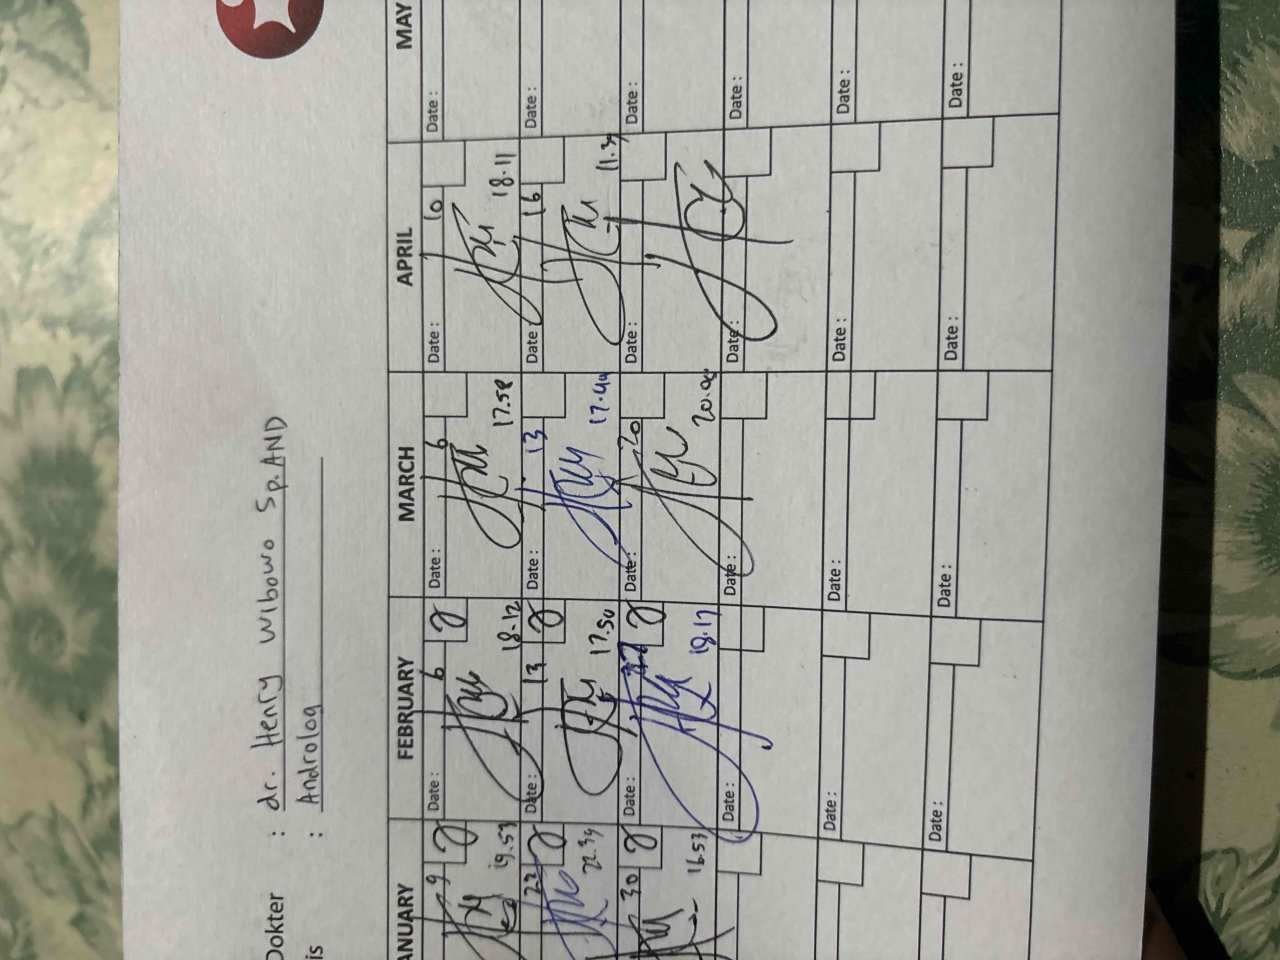 Dokter : dr. Henry Wibowo Sp.AND
is : Androlog
ANUARY FEBRUARY MARCH APRIL MAY
9 Date : 6 Date : 6 Date : 10 Date :
19.53 18.12 17.58 18.11
22 Date : 13 Date : 13 Date : 16 Date :
22.34 17.50 17.44
30 Date : Date : 20 Date : Date :
16.53 18.17
Date : Date : Date : Date :
Date : Date : Date : Date :
Date : Date : Date : Date :